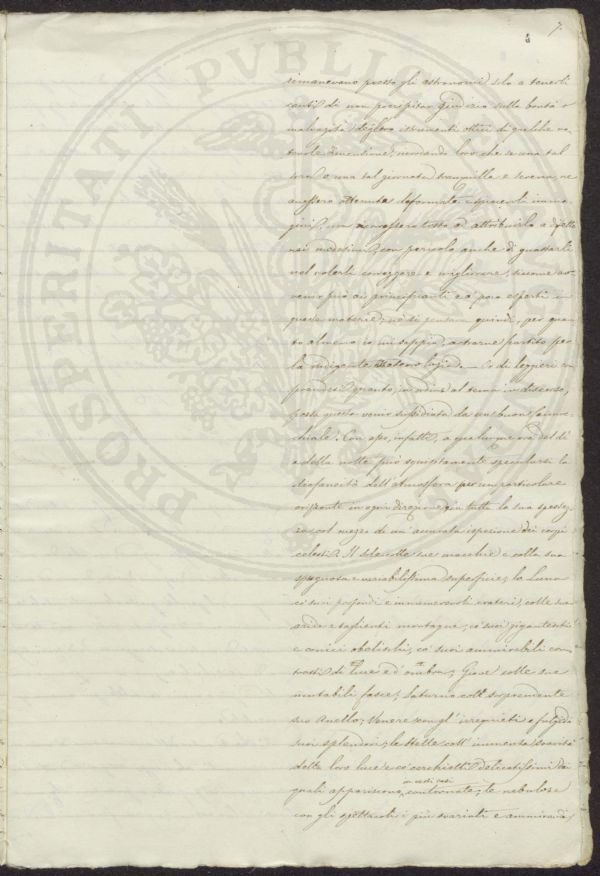 7.
rimanevano presso gli astronomi solo a tenerli
cauti di non precipitar giudizio sulla bontà o
malvagità dei loro istrumenti ottici di qualche no-
tevole dimensione, ricordando loro che se una tal
sera o una tal giornata tranquilla e serena, ne
avessero ottenute deformate e spiacenti imma-
gini, non corressero tosto ad attribuirlo a difetto
nei medesimi, con pericolo anche di guastarli
nel volerli correggere e migliorare, siccome av-
venir può ai principianti e a poco esperti in
queste materie; nè si pensava quindi, per quan-
to almeno io mi sappia, a trarne partito per
la vigente Meteorologia. — Or di leggeri com-
prendesi quanto, in ordine al tema in discorso,
possa questo venir sussidiata da un buon cannoc-
chiale. Con esso, infatti, a qualunque ora del dì
e della notte può squisitamente speculare la
diafaneità dell'atmosfera per un particolare
orizzonte in ogni direzione, giù tutta la sua spessez-
za, col mezzo di un'accurata ispezione dei corpi
celesti. Il sole colle sue macchie e colla sua
spugnosa e variabilissima superficie; la Luna
co' suoi profondi e innumerevoli crateri, colle sue
aride e taglienti montagne, co' suoi giganteschi
e conici obelischi, co' suoi ammirabili con-
trasti di luce ed ombra; Giove colle sue
mutabili fasce; Saturno col sorprendente
suo Anello; Venere con gl'irrequieti e fulgidi
suoi splendori; le stelle coll'immensa varietà
delle loro luci e co' cerchietti delicatissimi da
quali appariscono in certi casi contornate; le nebulose
con gli spettacoli i più svariati e ammirandi,
PROSPERITATI PVBLICAE